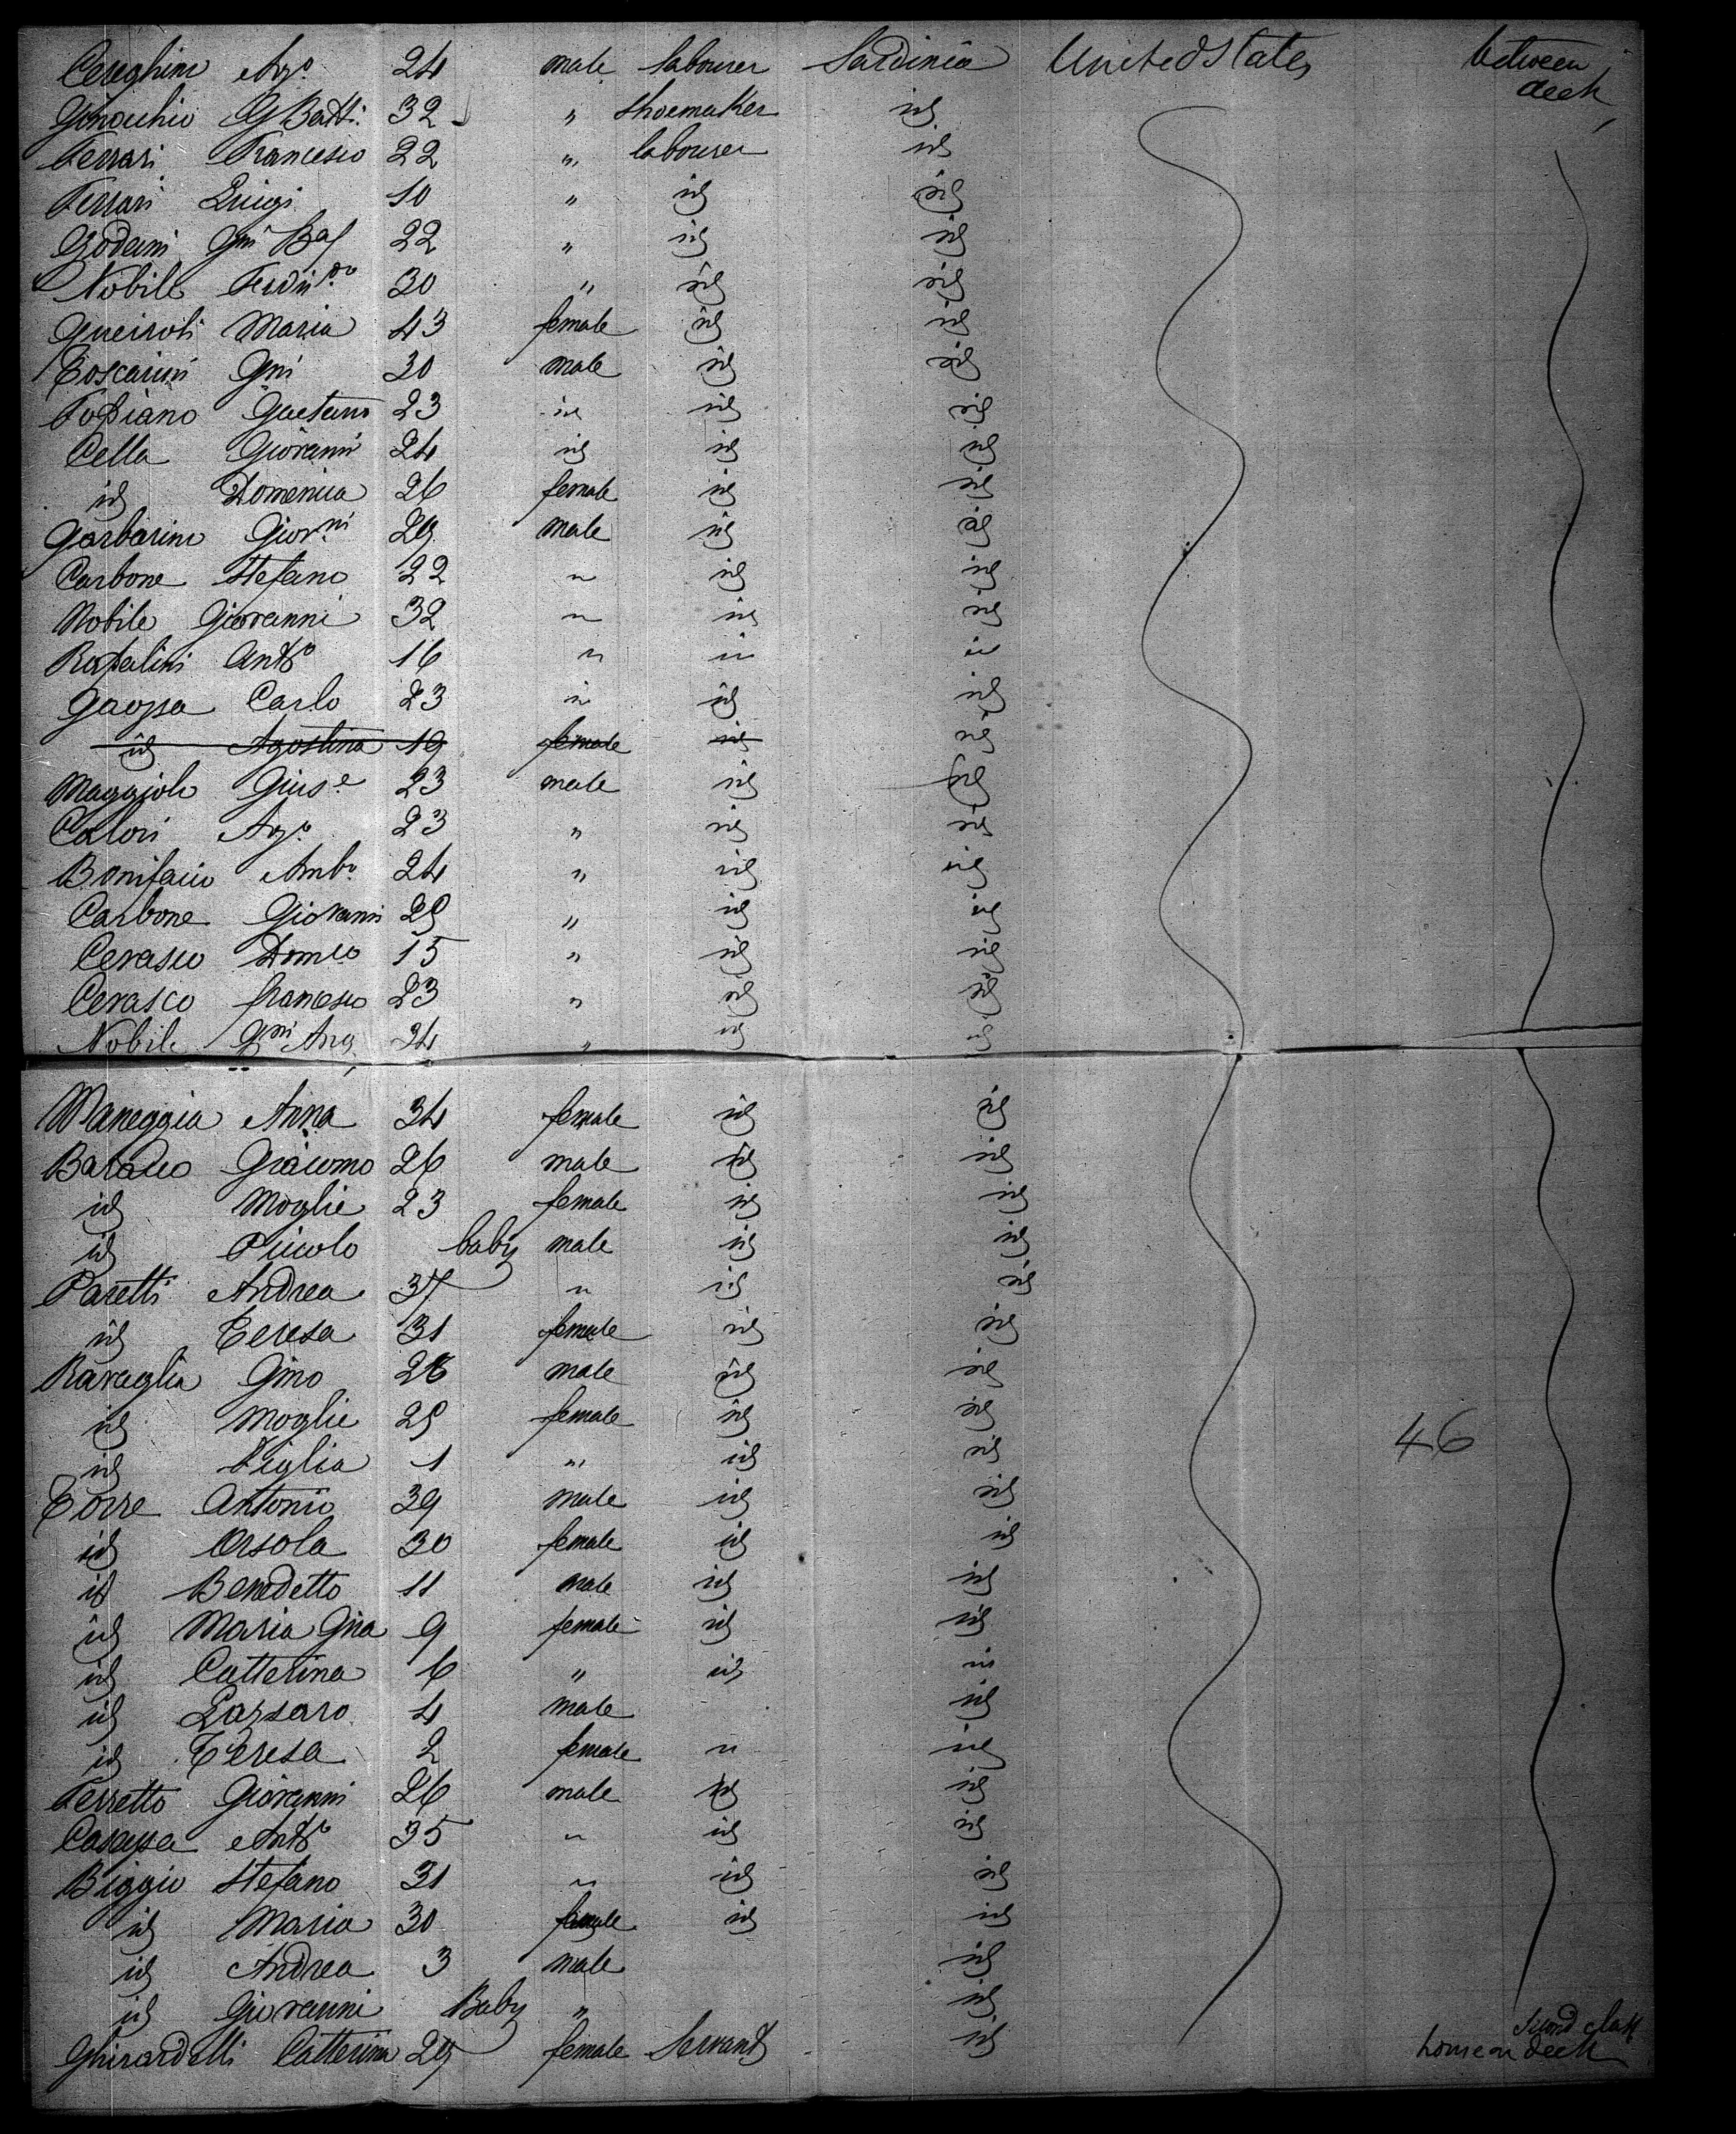 Cereghino Ago. 24 male labourer Sardinia United States between deck
Ginocchio G Batt. 32 " shoemaker id
Ferrari Francesco 22 " labourer id
Ferrari Luigi 10 " id id
Gni Ba 22 " id id
Nobile Ferdin.do 30 " id id
Queiroli Maria 43 female id id
Toscanini Gni 30 male id id
Gaetano 23 id id id
Cella Giovanni 24 id id id
id Domenica 26 female id id
Garbarino Giov.ni 29 male id id
Carbone Stefano 22 " id id
Nobile Giovanni 32 " id id
Anto 16 " " id
Carlo 23 " id id
id Agostina 19 female id id
Maggiolo Gius.e 23 male id id
Calori Ago. 23 " id id
Bonifacio Ambo. 24 " id id
Carbone Giovanni 25 " id id
Cerasco Domco 15 " id id
Cerasco francesco 23 " id id
Nobile Gni Ang 24 " id id
Maneggia Anna 34 female id id
Giacomo 26 male id id
id Moglie 23 female id id
id Piccolo baby male id id
Paretti Andrea 37 " id id
id Teresa 31 female id id
Ravaglia Gino male id id
id Moglie 25 female id id
id Figlia 1 " id id
46
Torre Antonio 39 male id id
id Orsola 30 female id id
id Benedetto 11 male id id
id Maria Gna 9 female id id
id Catterina 6 " id id
id Lazzaro 4 male id
id Teresa 2 female " id
Ferretto Giovanni 26 male id id
Casassa Anto 35 " id id
Biggio Stefano 31 " id id
id Maria 30 female id id
id Andrea 3 male id
id Giovanni Baby " id
Ghirardelli Catterina 29 female Servant id second class house on deck